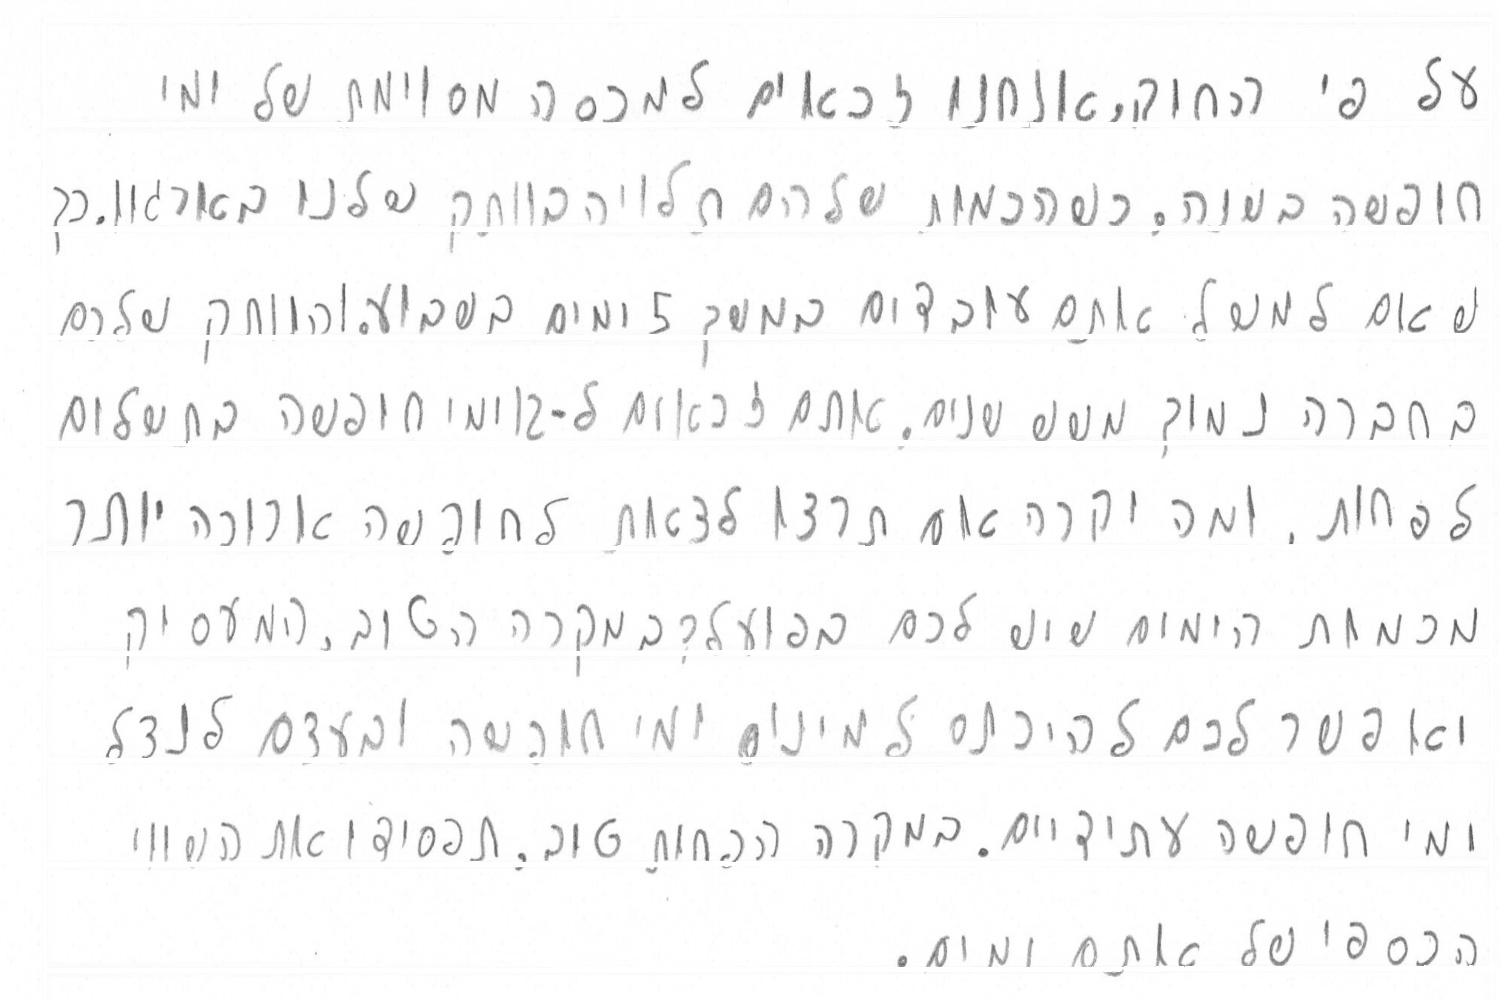 על פי החוק, אנחנו זכאים למכסה מסוימת של ימי
חופשה בשנה. כשהכמות שלהם תלויה בוותק שלנו בארגון. כך
שאם למשל אתם עובדים במשך 5 ימים בשבוע. והוותק שלכם
בחברה נמוך משש שנים. אתם זכאים ל-12 ימי חופשה בתשלום
לפחות. ומה יקרה אם תרצו לצאת לחופשה ארוכה יותר
מכמות הימים שיש לכם בפועל? במקרה הטוב, המעסיק
יאפשר לכם להיכנס למינוס ימי חופשה ובעצם לנצל
ימי חופשה עתידיים. במקרה הפחות טוב, תפסידו את השווי
הכספי של אתם ימים.